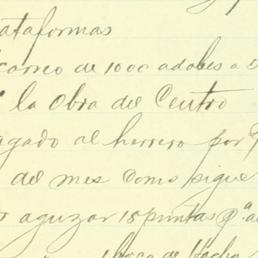 ataformas
carreo de 1000 adobes a 5
a la Obra del Centro
agado al herrero por
del mes como sigue
aguzar 18 puntas pa. a
boca de Hacha